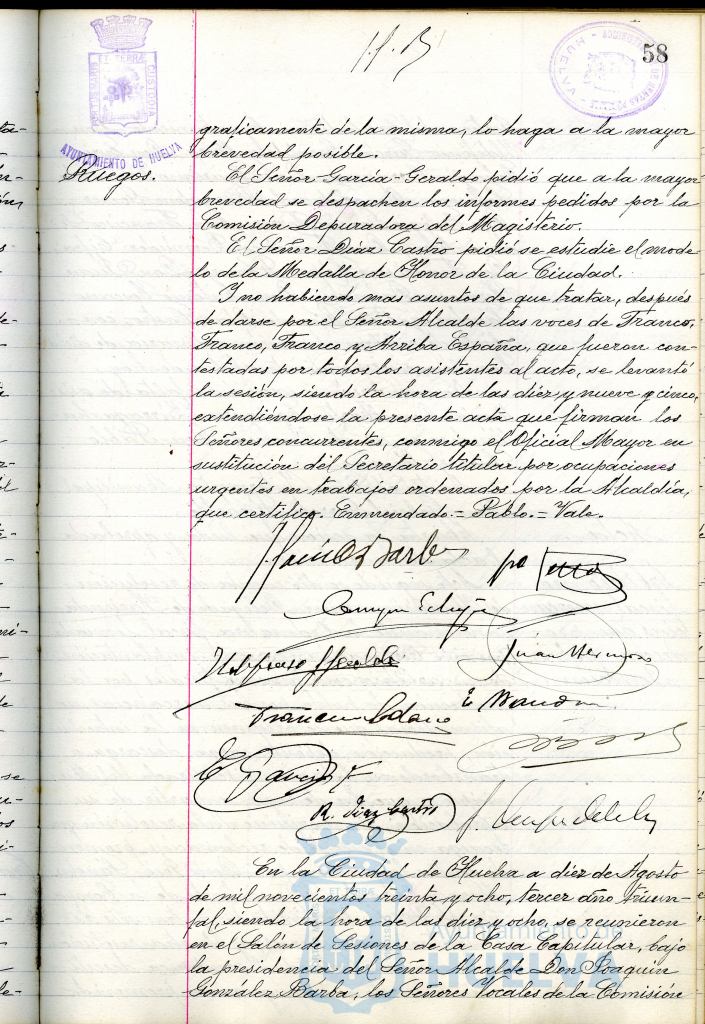 58
AYUNTAMIENTO DE HUELVA
gráficamente de la misma, lo haga a la mayor
brevedad posible.
Ruegos.
El Señor García-Geraldo pidió que a la mayor
brevedad se despachen los informes pedidos por la
Comisión Depuradora del Magisterio.
El Señor Díaz Castro pidió se estudie el mode-
lo de la Medalla de Honor de la Ciudad.
Y no habiendo mas asuntos de que tratar, después
de darse por el Señor Alcalde las voces de Franco,
Franco, Franco y Arriba España, que fueron con-
testadas por todos los asistentes al acto, se levantó
la sesión, siendo la hora de las diez y nueve y cinco,
extendiéndose la presente acta que firman los
Señores concurrentes, conmigo el Oficial Mayor en
sustitución del Secretario titular por ocupaciones
urgentes en trabajos ordenados por la Alcaldía,
que certifico. Enmendado.= Pablo.= Vale.
Juan Hermoso
R. Díaz Castro
En la Ciudad de Huelva a diez de Agosto
de mil novecientos treinta y ocho, tercer año triun-
fal, siendo la hora de las diez y ocho, se reunieron
en el Salón de Sesiones de la Casa Capitular, bajo
la presidencia del Señor Alcalde Don Joaquín
González Barba, los Señores Vocales de la Comisión
Ayuntamiento de
HUELVA